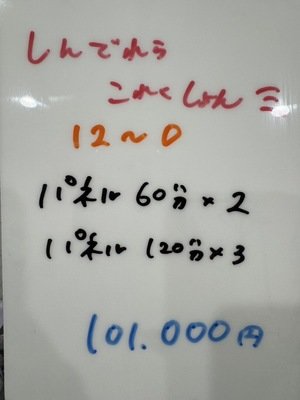 しんでれら
これくしょん 三
12〜0
パネル 60分×2
パネル 120分×3
101.000円